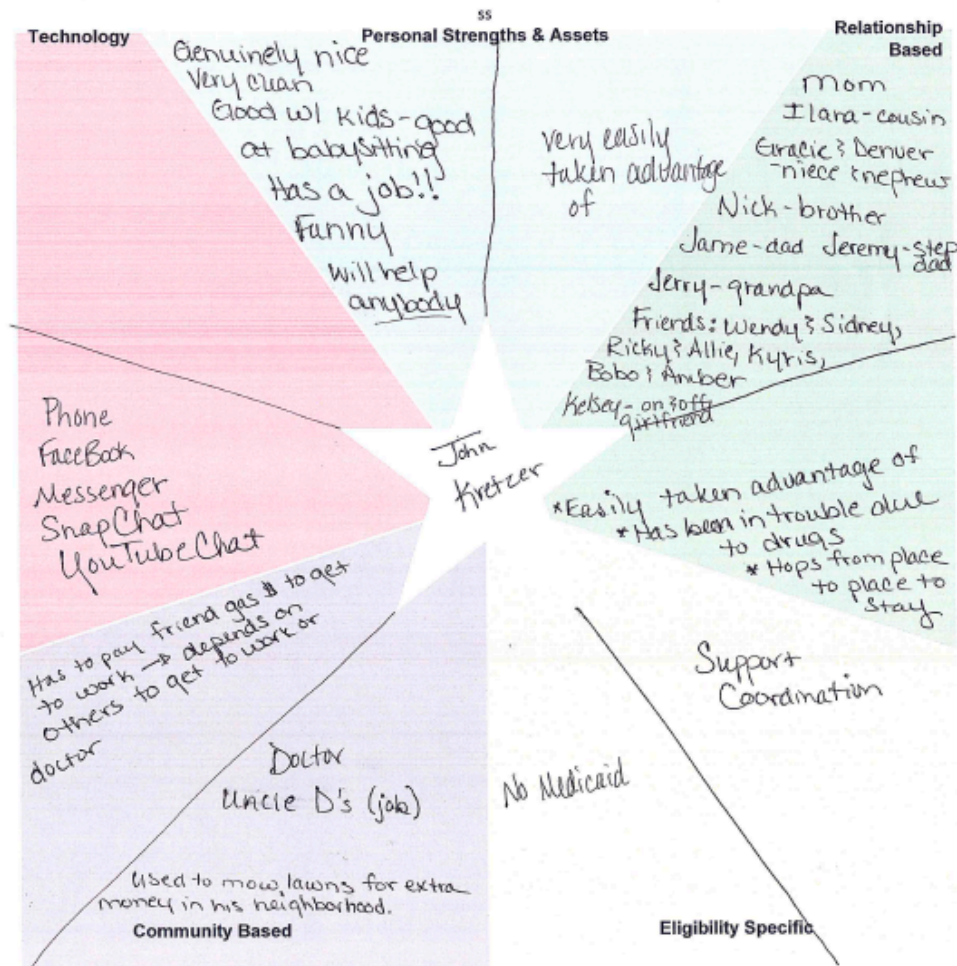 ss
Technology
Personal Strengths & Assets
Relationship
Based
Genuinely nice
Very clean
Good w/ kids - good
at babysitting
Has a job!!
Funny
will help
anybody
very easily
taken advantage
of
Mom
Ilara - cousin
Gracie & Denver
- niece & nephew
Nick - brother
Jame - dad Jeremy - step
dad
Jerry - grandpa
Friends: Wendy & Sidney,
Ricky & Allie, Kyris,
Bobo & Amber
Kelsey - on & off
girlfriend
Phone
FaceBook
Messenger
SnapChat
YouTubeChat
John
Kretzer
*Easily taken advantage of
*Has been in trouble due
to drugs
* Hops from place
to place to
stay
Has to pay friend gas $ to get
to work → depends on
others to get to work or
doctor
Doctor
Uncle D's (job)
Used to mow lawns for extra
money in his neighborhood.
Community Based
Support
Coordination
No Medicaid
Eligibility Specific